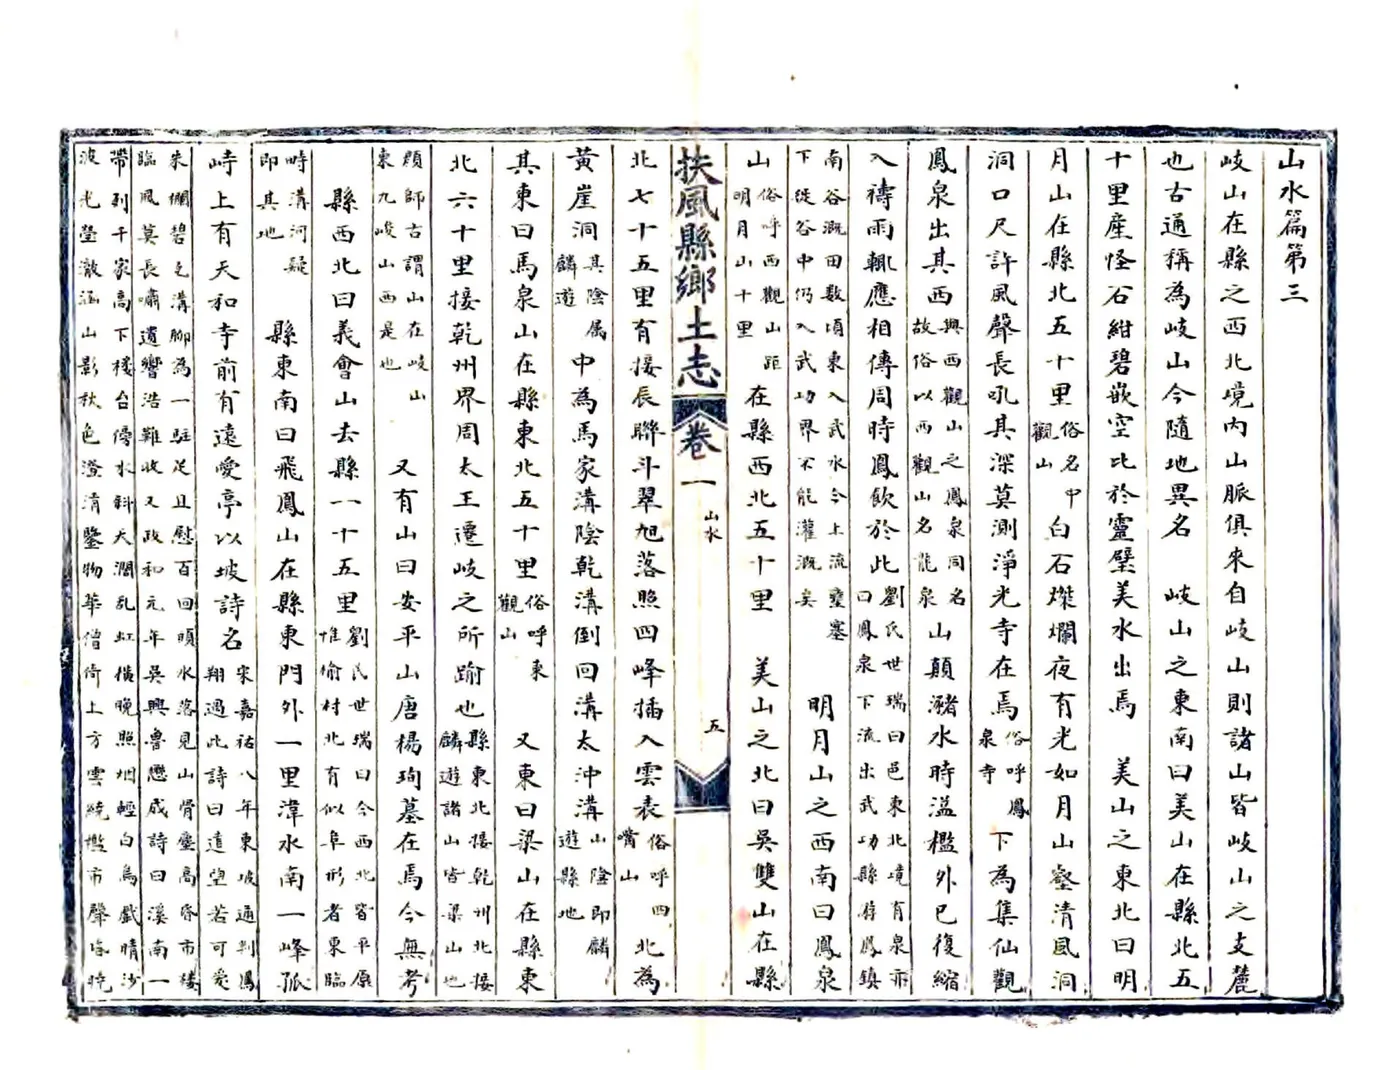 山水篇第三
岐山在縣之西北境內山脈俱來自岐山則諸山皆岐山之支麓
也古通稱為岐山今隨地異名　岐山之東南曰美山在縣北五
十里產怪石紺碧嵌空比於靈璧美水出焉　美山之東北曰明
月山在縣北五十里俗名中觀山白石燦爛夜有光如月山壑清風洞
洞口尺許風聲長吼其深莫測淨光寺在焉俗呼鳳泉寺下為集仙觀
鳳泉出其西與西觀山之鳳泉同名故俗以西觀山名龍泉山顛瀦水時溢檻外已復縮
入禱雨輒應相傳周時鳳飲於此劉氏世瑞曰邑東北境有泉亦曰鳳泉下流出武功縣游鳳鎮
南谷溉田数頃東入武水今上流壅塞下從谷中仍入武功界不能灌溉矣　明月山之西南曰鳳泉
山俗呼西觀山距明月山十里在縣西北五十里　美山之北曰吳雙山在縣
扶風縣鄉土志　卷一　山水　五
北七十五里有接辰聯斗翠旭落照四峰插入雲表俗呼四嘴山北為
黃崖洞其陰属麟遊中為馬家溝陰乾溝倒回溝太沖溝山陰即麟遊縣地
其東曰馬泉山在縣東北五十里俗呼東觀山又東曰梁山在縣東
北六十里接乾州界周太王遷岐之所踰也縣東北接乾州北接麟遊諸山皆梁山也
顏師古謂山在岐山東九嵕山西是也　又有山曰安平山唐楊珣墓在焉今無考
縣西北曰義會山去縣一十五里劉氏世瑞曰今西北皆平原惟偷村北有似阜形者東臨
畤溝河疑即其地　縣東南曰飛鳳山在縣東門外一里湋水南一峰孤
峙上有天和寺前有遠愛亭以坡詩名宋嘉祐八年東坡通判鳳翔過此詩曰遠望若可愛
朱欄碧之溝聊為一駐足且慰百回頭水落見山骨塵高昏市樓臨風莫長嘯遺響浩難收又政和元年吳興魯懋成詩曰溪南一
帶列千家高下棧台傍水斜天濶乱虹橫晚照烟輕白鳥戲晴沙波光瑩澈涵山影秋色澄清鑒物華僧倚上方雲繞檻市聲